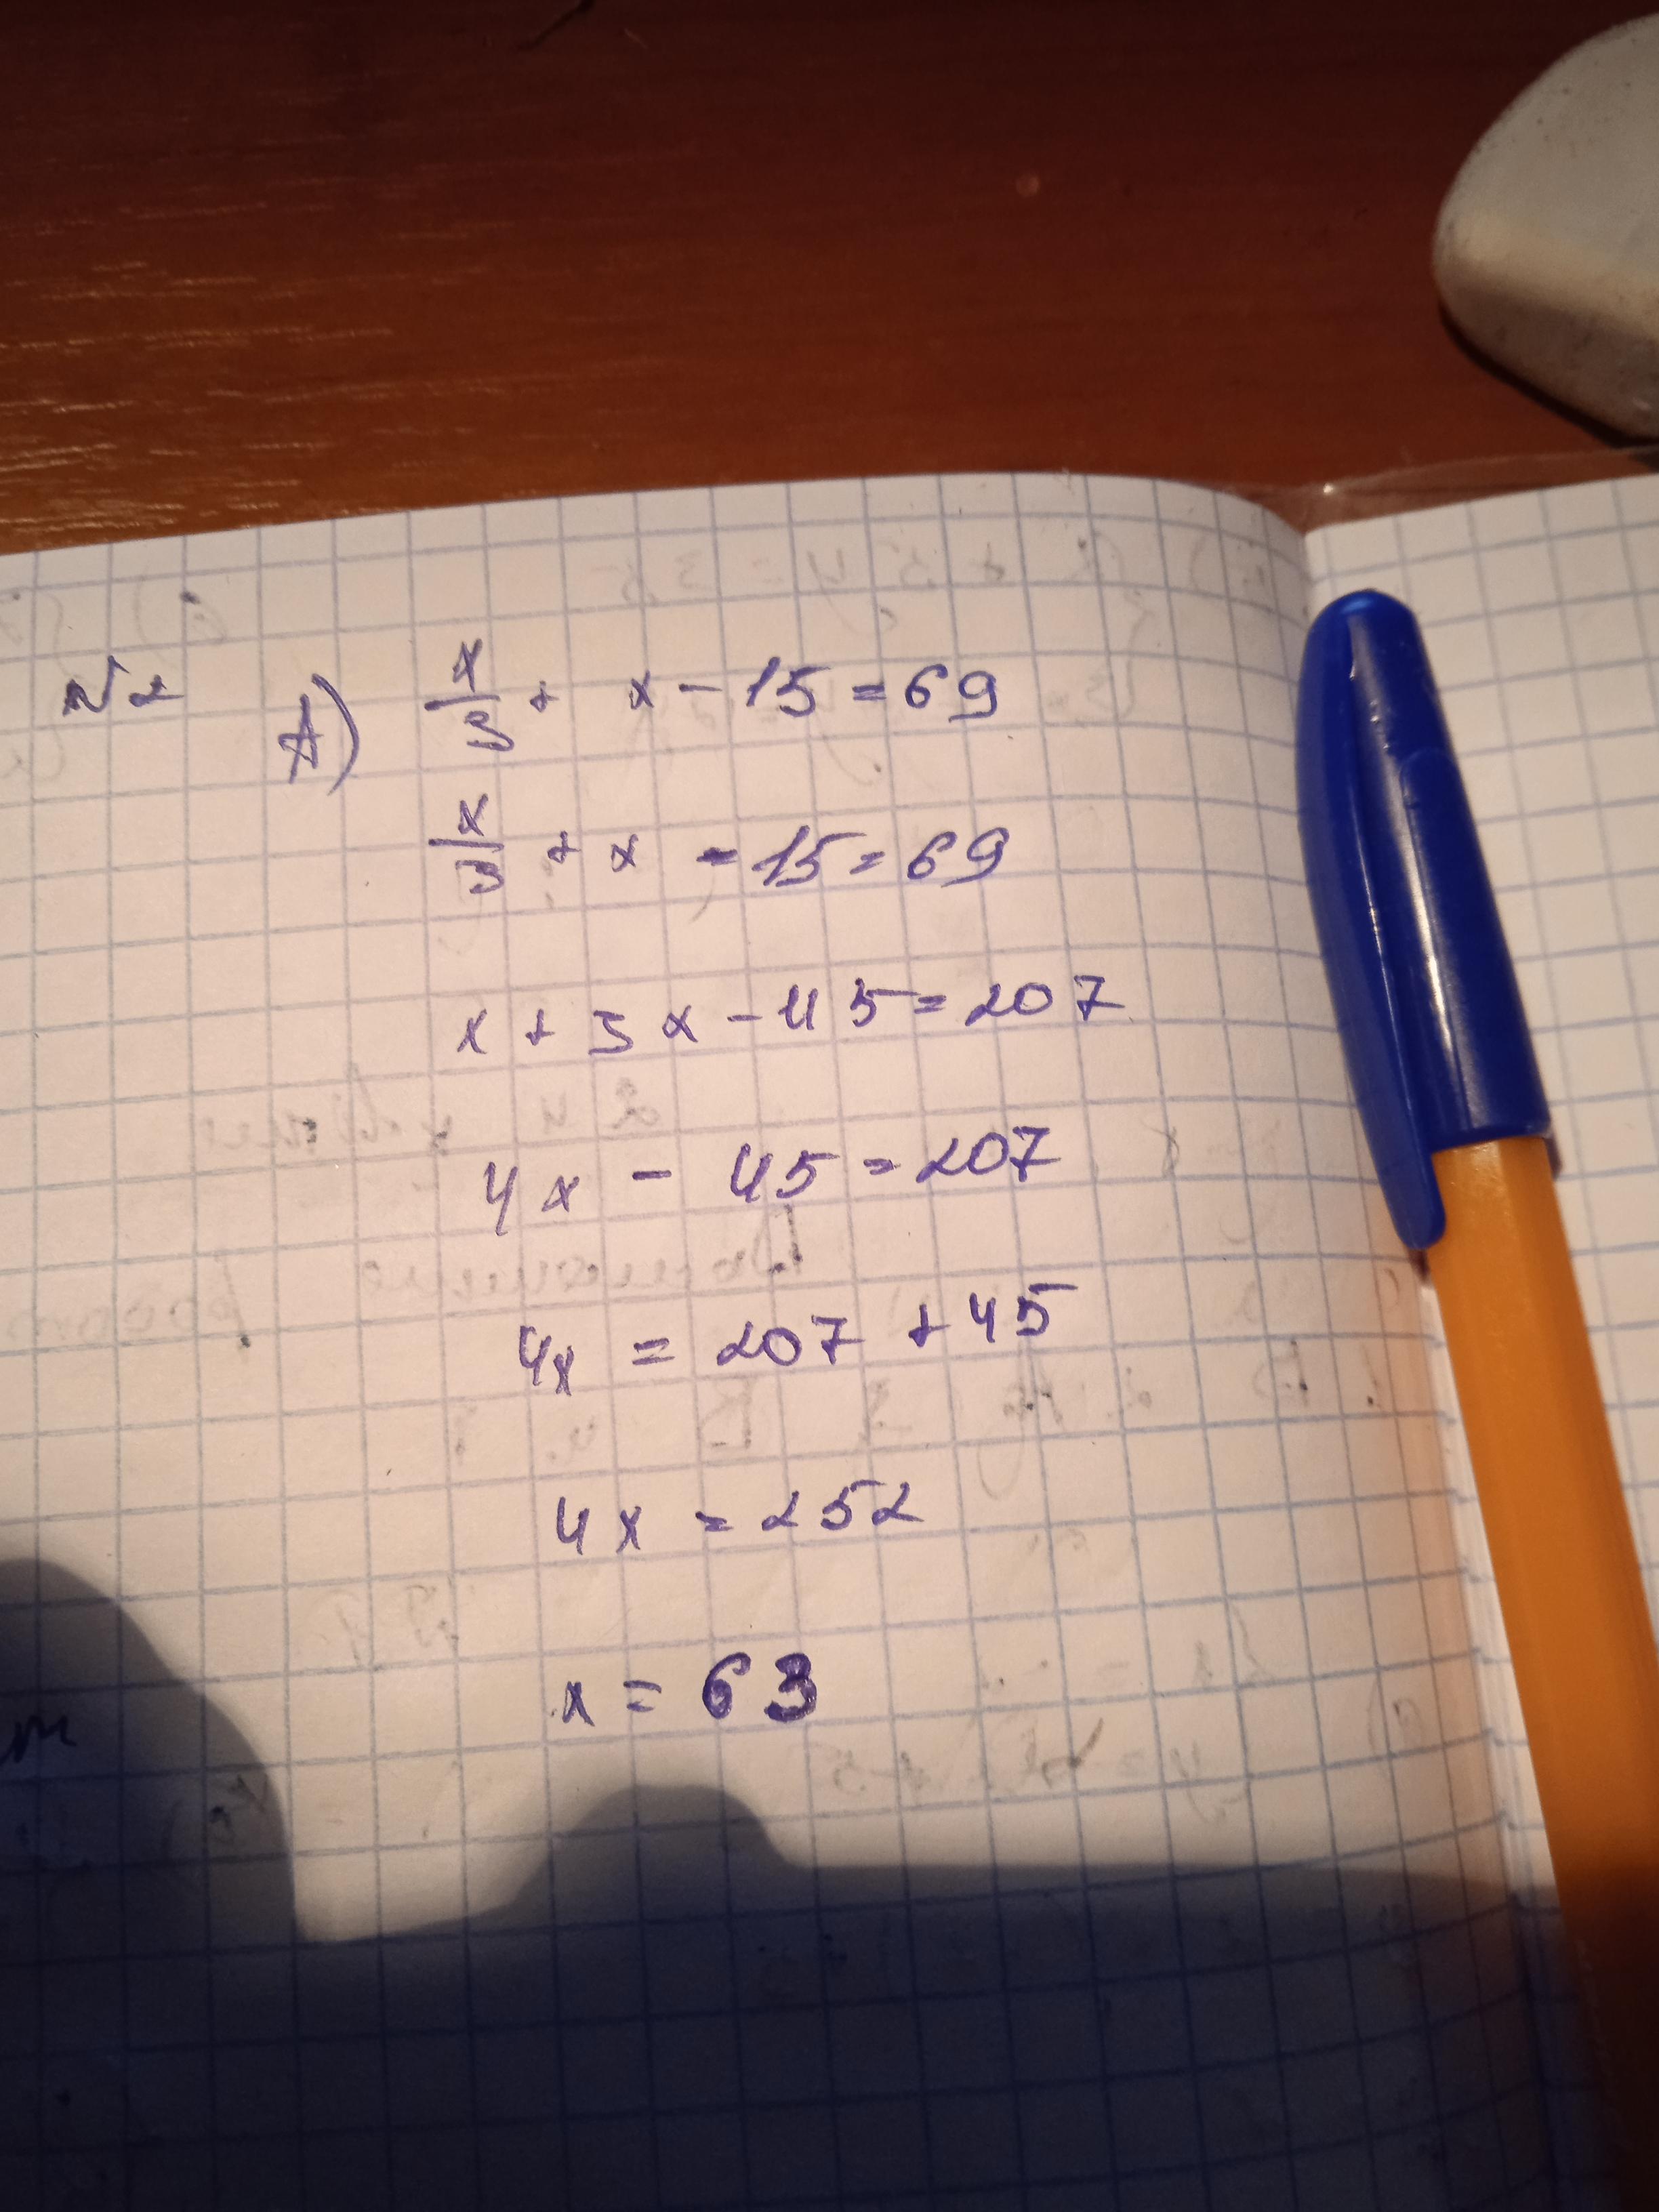 №2 А) x/3 + x - 15 = 69
x/3 + x - 15 = 69
x + 3x - 45 = 207
4x - 45 = 207
4x = 207 + 45
4x = 252
x = 63